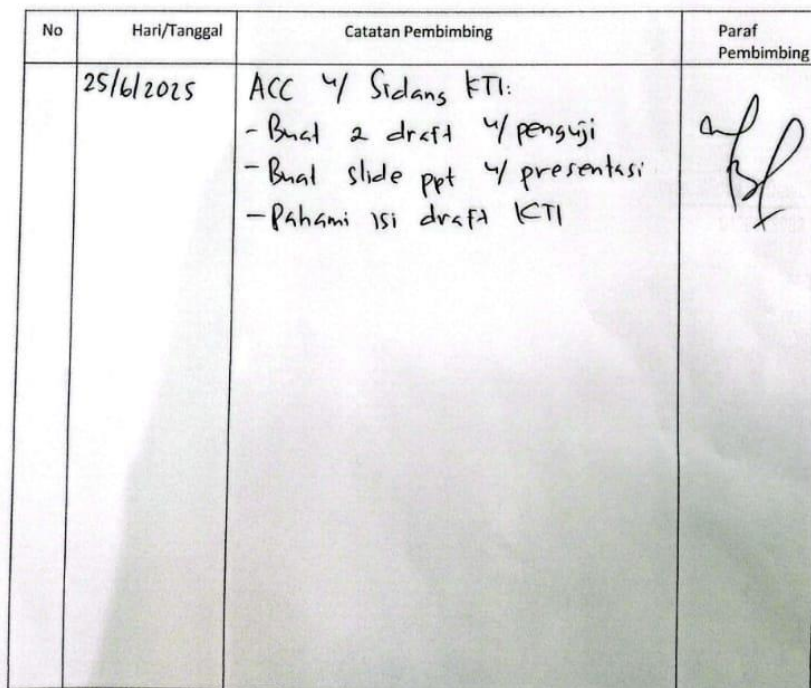 No Hari/Tanggal Catatan Pembimbing Paraf
Pembimbing
25/6/2025 ACC u/ Sidang KTI:
- Buat 2 draft u/ penguji
- Buat slide ppt u/ presentasi
- Pahami isi draft KTI